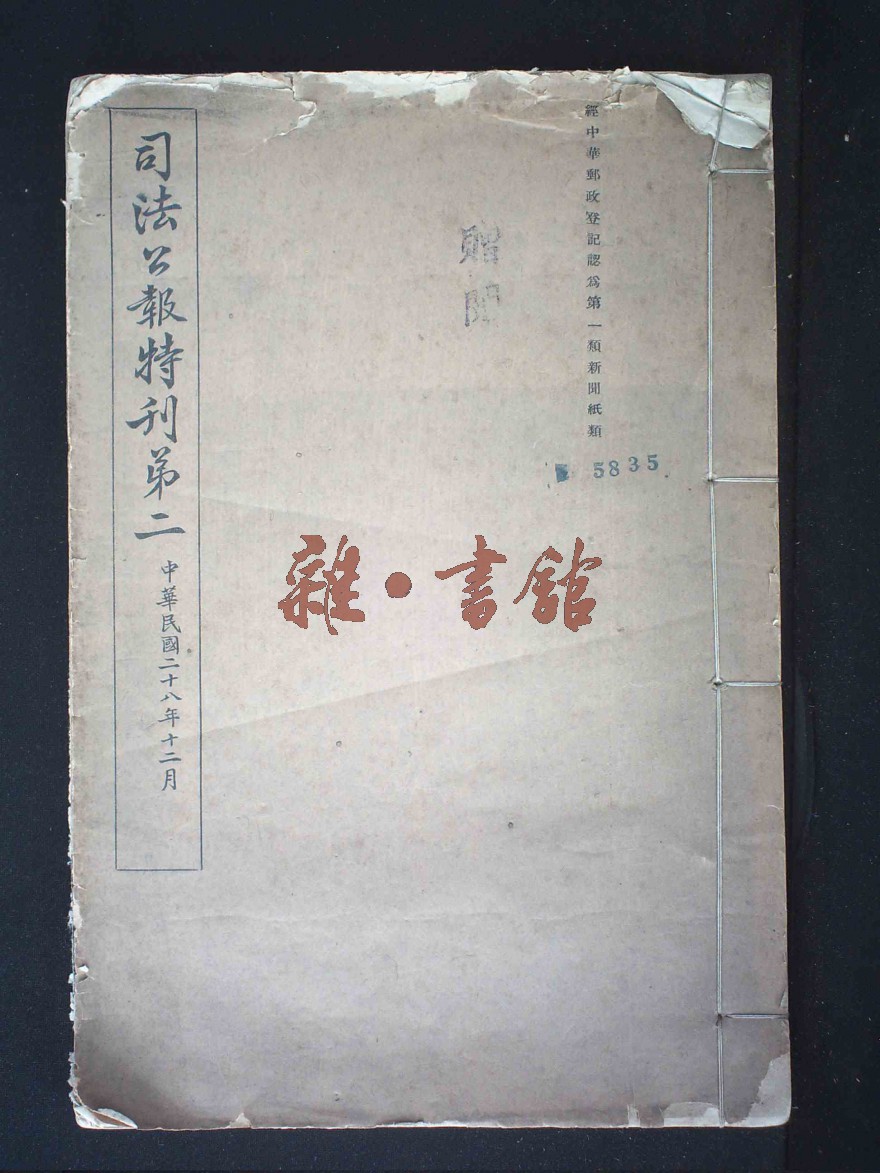 經中華郵政登記認為第一類新聞紙類
贈閱
5835
司法公報特刊第二
中華民國二十八年十二月
雜·書館